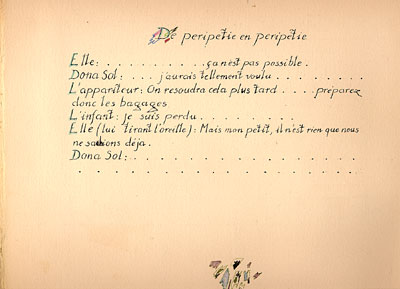 De peripetie en peripetie
Elle: . . . . . . . . . . ça n'est pas possible .
Dona Sol: . . . j'aurais tellement voulu . . . . . . . . .
L'appariteur: On resoudra cela plus tard . . . . préparez
donc les bagages
L'infant: je suis perdu . . . . . . . . . .
Elle (lui tirant l'oreille): Mais mon petit, il n'est rien que nous
ne sachions déja .
Dona Sol: . . . . . . . . . . . . . . . . . .
. . . . . . . . . . . . . . . . . . . . . .